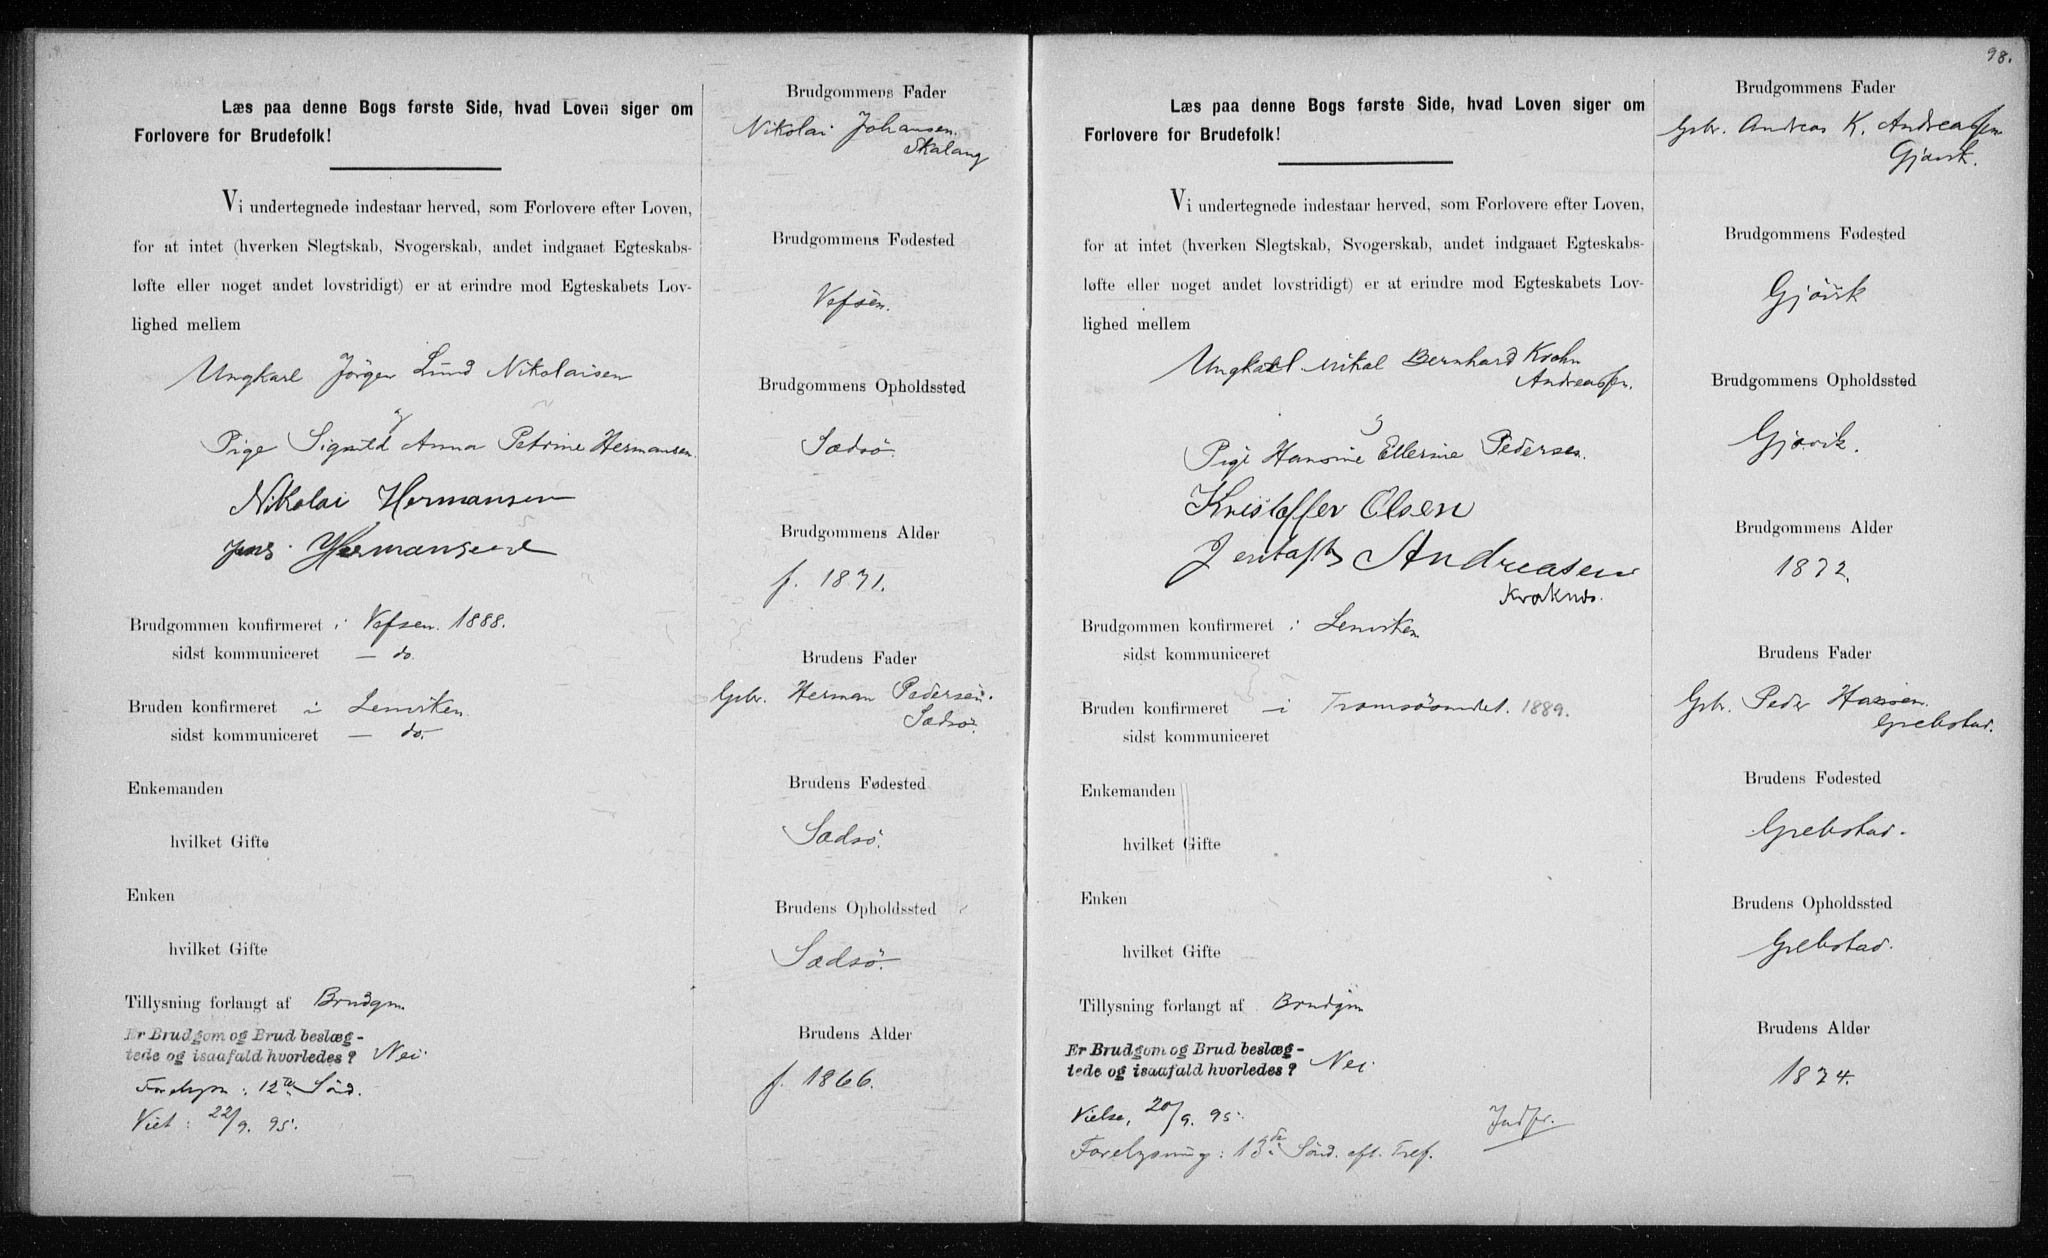 Læs paa denne Bogs første Side, hvad Loven siger om
Forlovere for Brudefolk!
Vi undertegnede indestaar herved, som Forlovere efter Loven,
for at intet (hverken Slegtskab, Svogerskab, andet indgaaet Egteskabs-
løfte eller noget andet lovstridigt) er at erindre mod Egteskabets Lov-
lighed mellem
Ungkarl Jörgen Lund Nikolaisen
og
Pige Signild Anna Petrine Hermansen.
Nikolai Hermansen
Jens Hermansen
Brudgommen konfirmeret i Vefsen. 1888.
sidst kommuniceret — do.
Bruden konfirmeret i Lenviken.
sidst kommuniceret — do.
Enkemanden
hvilket Gifte
Enken
hvilket Gifte
Tillysning forlangt af Brudgm
Er Brudgom og Brud beslæg-
tede og isaafald hvorledes? Nei.
12te Sönd.
Viet: 22/9. 95.
Brudgommens Fader
Nikolai Johansen.
Skalang
Brudgommens Fødested
Vefsen.
Brudgommens Opholdssted
Sædsö.
Brudgommens Alder
f. 1871.
Brudens Fader
Gbr. Herman Pedersen.
Sædsö.
Brudens Fødested
Sædsö.
Brudens Opholdssted
Sædsö.
Brudens Alder
f. 1866.
98.
Læs paa denne Bogs første Side, hvad Loven siger om
Forlovere for Brudefolk!
Vi undertegnede indestaar herved, som Forlovere efter Loven,
for at intet (hverken Slegtskab, Svogerskab, andet indgaaet Egteskabs-
løfte eller noget andet lovstridigt) er at erindre mod Egteskabets Lov-
lighed mellem
Ungkarl Mikal Bernhard Krohn
Andreassen.
og
Pige Hansine Ellerine Pedersen.
Kristoffer Olsen
Jentoft Andreasen
Kraknes.
Brudgommen konfirmeret i Lenviken
sidst kommuniceret
Bruden konfirmeret — i Tromsösundet. 1889.
sidst kommuniceret
Enkemanden
hvilket Gifte
Enken
hvilket Gifte
Tillysning forlangt af Brudgm
Er Brudgom og Brud beslæg-
tede og isaafald hvorledes? Nei.
Vielse, 20/9. 95.
Indfr.
Forelysning: 13de Sönd. eft. Tref.
Brudgommens Fader
Gbr. Andreas K. Andreassen
Gjövik.
Brudgommens Fødested
Gjövik
Brudgommens Opholdssted
Gjövik.
Brudgommens Alder
1872.
Brudens Fader
Gbr. Peder Hansen.
Grebstad.
Brudens Fødested
Grebstad.
Brudens Opholdssted
Grebstad.
Brudens Alder
1874.